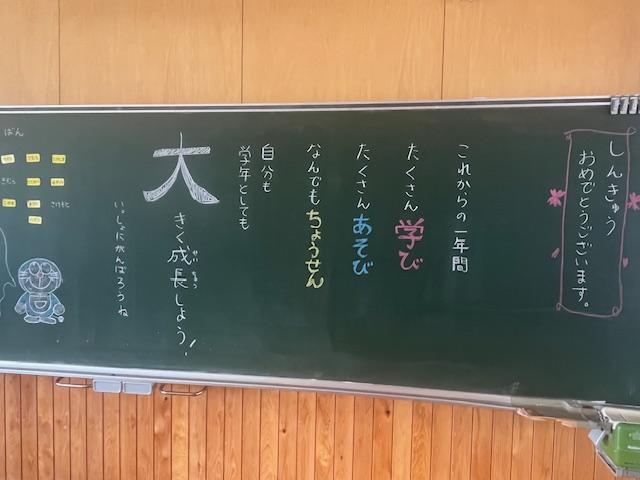 しんきゅう
おめでとうございます。
これからの一年間
たくさん学び
たくさんあそび
なんでもちょうせん
自分も
学年としても
大きく成長しよう!
せいちょう
いっしょにがんばろうね
ばん